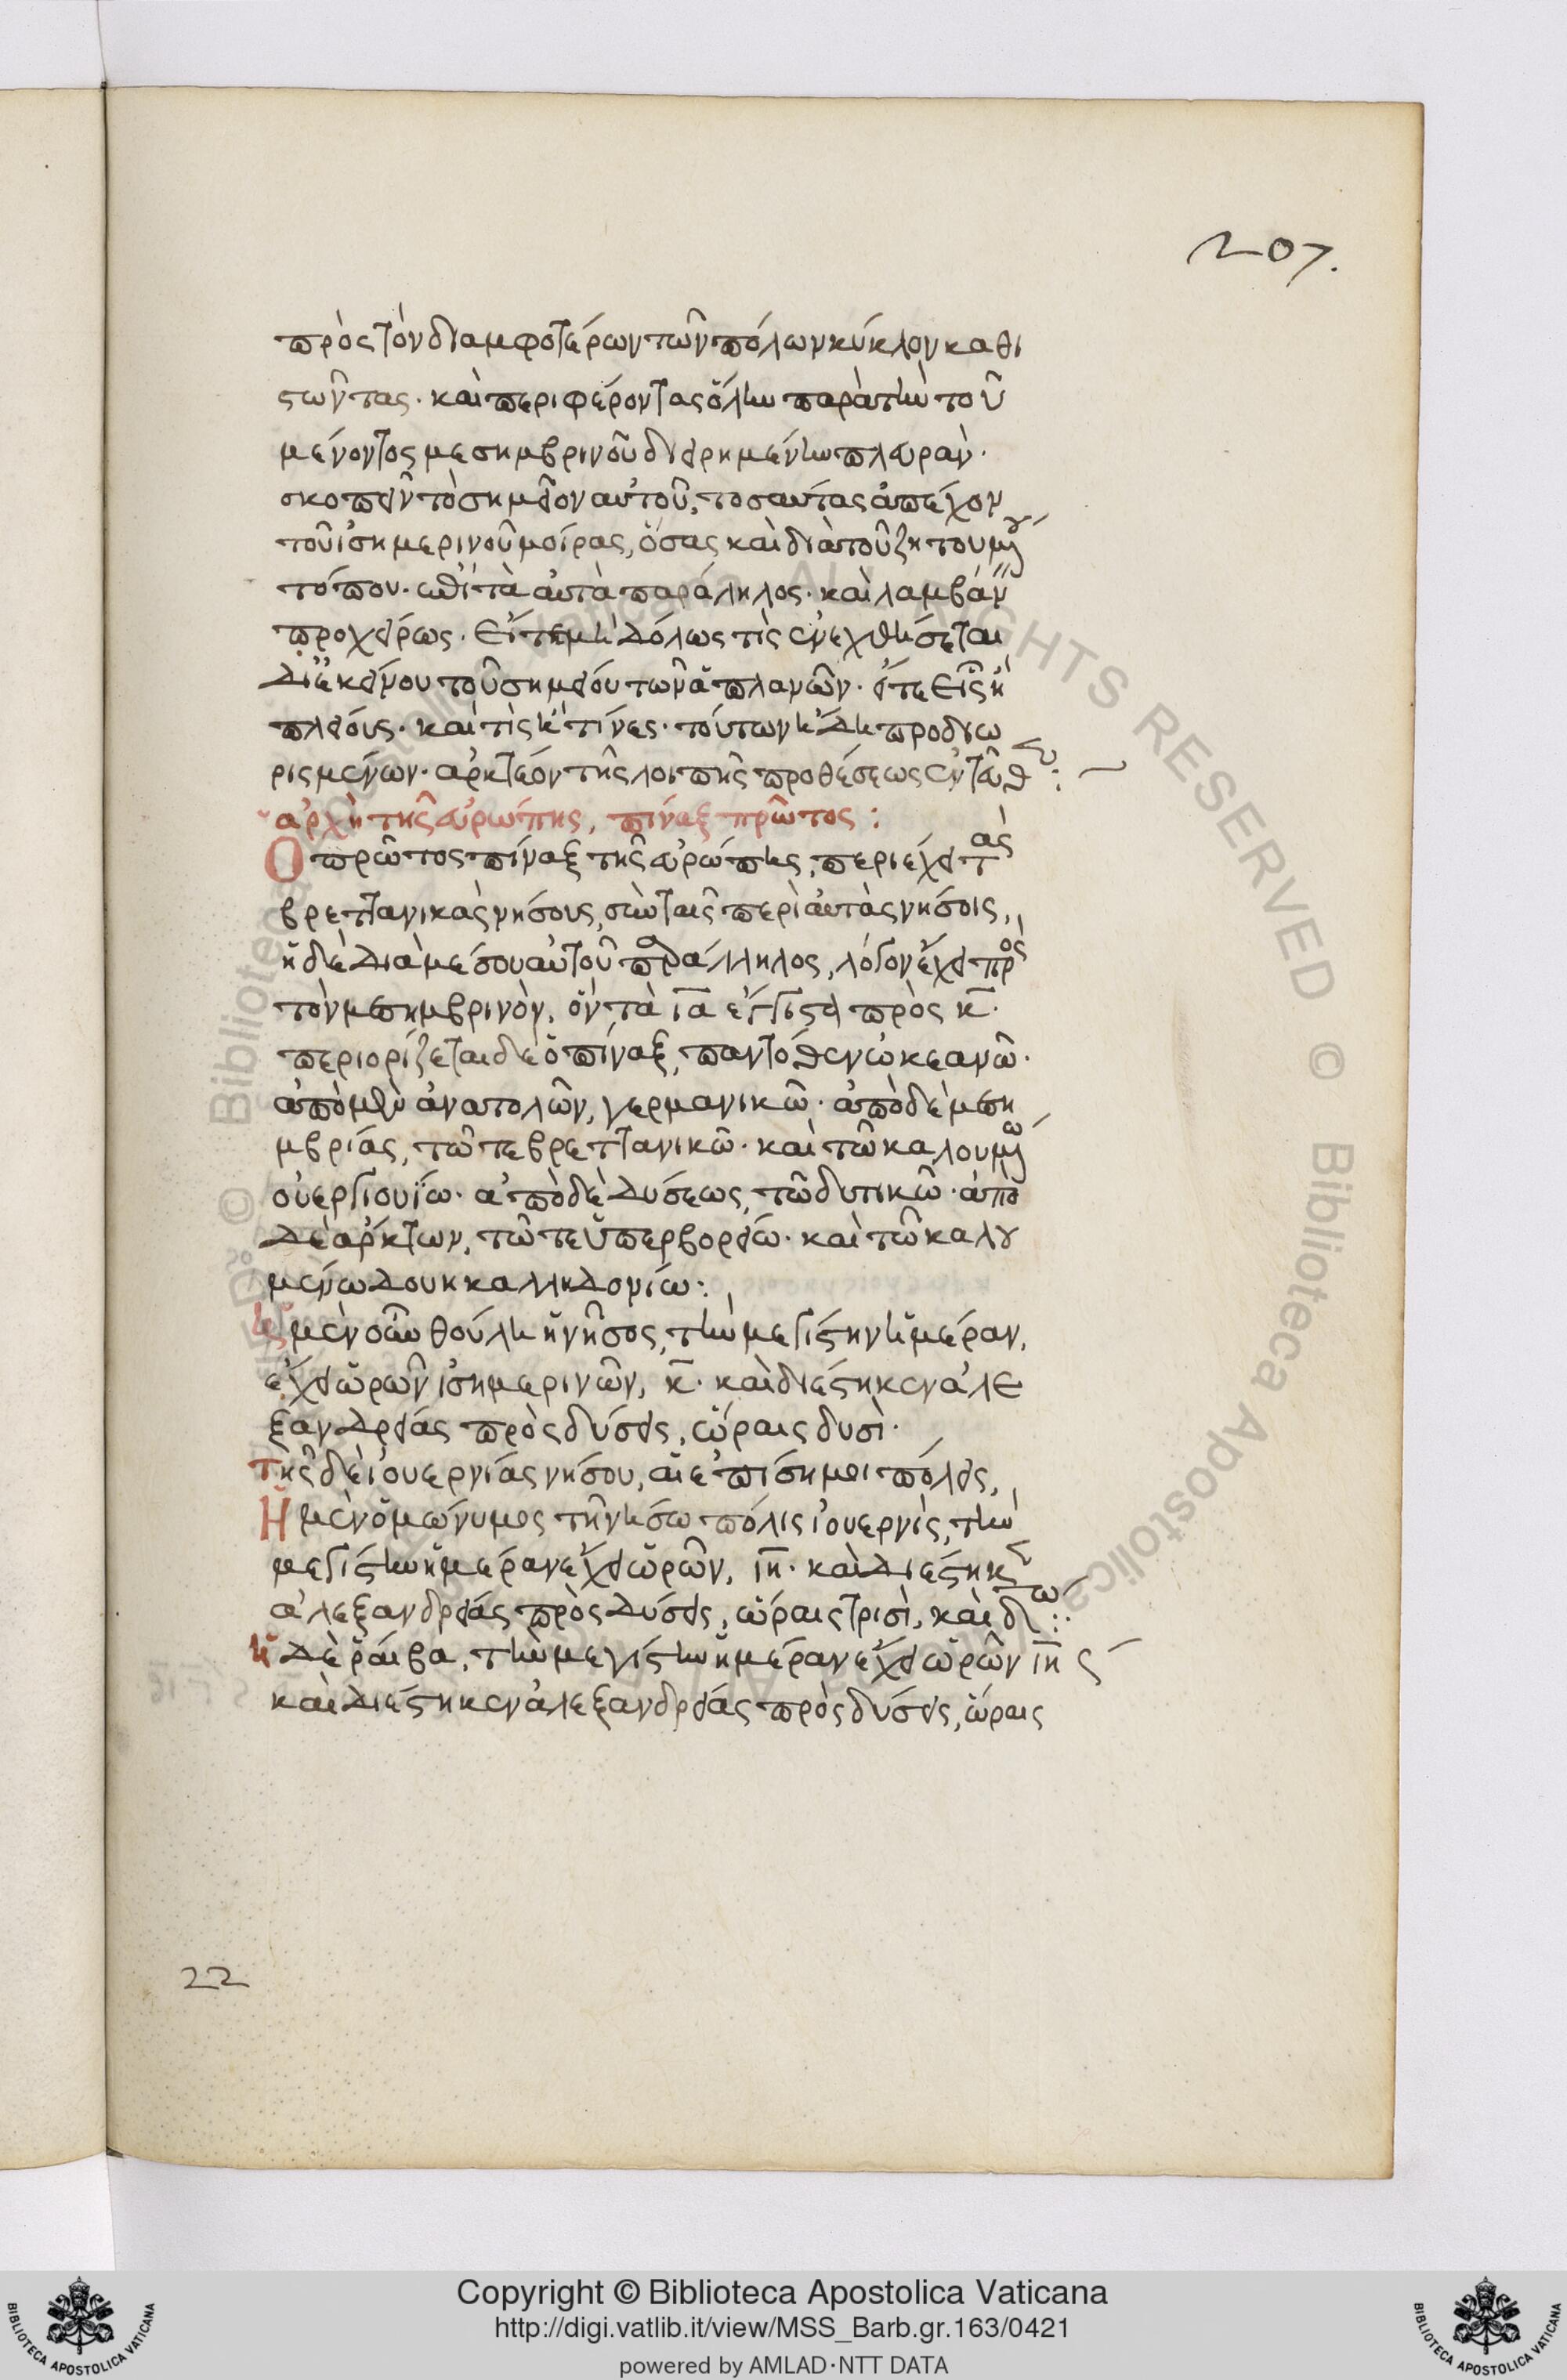 207.
πρὸς τὸν δι αμφοτέρων τῶν πόλων κύκλον καθι
στῶντας· καὶ περιφέροντας ὅλην παρὰ τὴν τοῦ
μένοντος μεσημβρινοῦ διειρημένην πλευράν·
σκοπεῖν τὸ σημεῖον αὐτοῦ, τοσαύτας ἀπέχον
τοῦ ἰσημερινοῦ μοίρας, ὅσας καὶ διὰ τοῦ ζητουμ
τόπου· τὰ αὐτὰ παράληλος· καὶ λαμβάν
προχείρως· εἴτε μηδ όλως τὶς ἐνεχθήσεται
δι ἐκείνου τοῦ σημείου τῶν ἀπλανῶν· εἴτε εἷς ἢ
πλείους· καὶ τὶς ἢ τίνες· τούτων ἤδη προδιω
ρισμένων· αρκτεόν τῆς λοιπῆς προθέσεως ἐντεῦθ:
αρχὴ τῆς εὐρώπης, πίναξ πρῶτος:
Ο πρῶτος πίναξ τῆς εὐρώπης, περιέχει τὰς
βρεττανικὰς νήσους, σὺν ταῖς περὶ αὐτὰς νήσοις,
ἡ δὲ διὰ μέσου αὐτοῦ παράλληλος, λόγον ἔχει πρὸς
τὸν μεσημβρινὸν, ὃν τὰ ια ἔγγιστα πρὸς κ·
περιορίζεται δὲ ὁ πίναξ, παντόθεν ὠκεανῶ·
ἀπὸ μὲν ἀνατολῶν, γερμανικῶ· ἀπὸ δὲ μεση
μβρίας, τῶ τε βρεττανικῶ· καὶ τῶ καλουμω
οὐεργιουΐω· ἀπὸ δὲ δύσεως, τῶ δυτικῶ· ἀπὸ
δὲ ἄρκτων, τῶ τε ὑπερβορείω· καὶ τῶ καλου
μένω δουηκαλληδονίω:
ἡ μὲν οὖν θούλη ἡ νῆσος, τὴν μεγίστην ἡμέραν,
ἔχει ὡρῶν ἰσημερινῶν, κ· καὶ διέστηκεν ἀλε
ξανδρείας πρὸς δύσεις, ὥραις δυσὶ·
τῆς δὲ ἰουερνίας νήσου, αἱ ἐπίσημοι πόλεις,
Ἡ μὲν ὁμώνυμος τῆ νήσω πόλις ἰουερνὶς, τὴν
μεγίστην ἡμέραν ἔχει ὡρῶν, ιη· καὶ διέστηκ
ἀλεξανδρείας πρὸς δύσεις, ὥραις τρισὶ, καὶ δι:
ἡ δὲ ῥαίβα, τὴν μεγίστην ἡμέραν ἔχει ὡρῶν ιη ς
καὶ διέστηκεν ἀλεξανδρείας πρὸς δύσεις, ὥραις
22
Copyright © Biblioteca Apostolica Vaticana
http://digi.vatlib.it/view/MSS_Barb.gr.163/0421
powered by AMLAD·NTT DATA